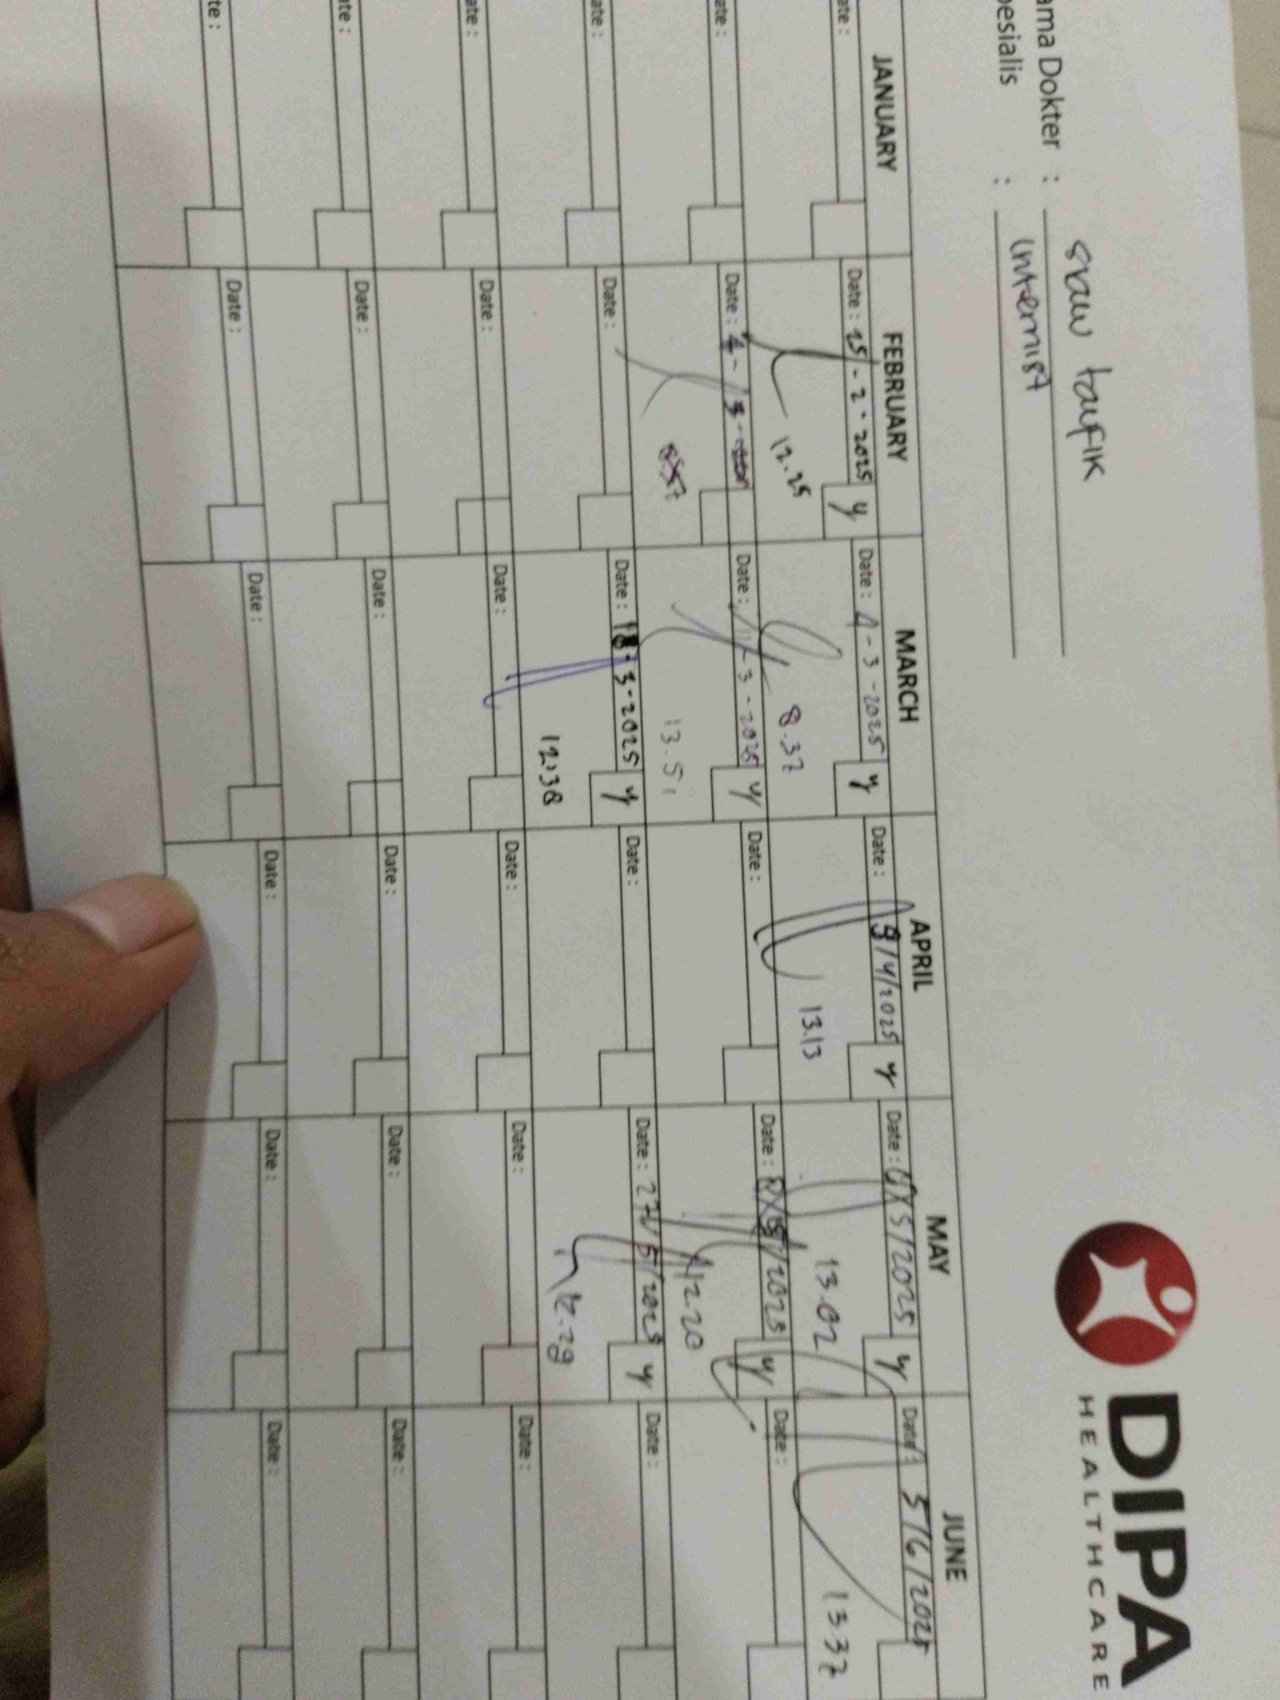 DIPA
HEALTHCARE
ama Dokter :
taufik
pesialis : Internist
JANUARY FEBRUARY MARCH APRIL MAY JUNE
ate : Date : 25-2-2025 y Date : 4-3-2025 y Date : 9/4/2025 y Date : /5/2025 y Date : 5/6/2025
12.25 8.37 13.13 13.02 13.37
ate : Date : 4- Date : -3-2025 y Date : Date : /2025 y Date :
13.51 12.20
ate : Date : Date : 18-3-2025 y Date : Date : 27/5/2025 y Date :
12.38 12.29
ate : Date : Date : Date : Date : Date :
te : Date : Date : Date : Date : Date :
te : Date : Date : Date : Date : Date :